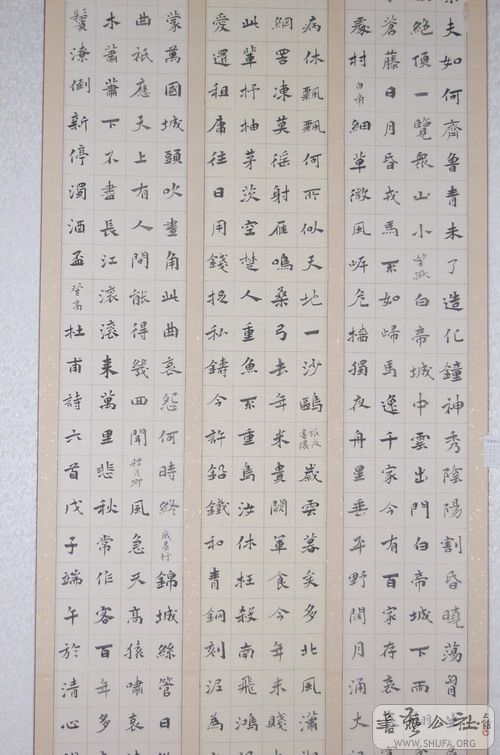 夫如何齊魯青未了造化鐘神秀陰陽割昏曉蕩胷生
絕頂一覽衆山小望嶽白帝城中雲出門白帝城下雨
蒼藤日月昏戎馬不如歸馬逸千家今有百家存哀
處村白帝細草微風岸危檣獨夜舟星垂平野闊月涌大江
病休飄飄何所似天地一沙鷗旅夜書懷歲雲暮矣多北風瀟
網罟凍莫徭射雁鳴桑弓去年米貴闕軍食今年米賤
此輩杼柚茅茨空楚人重魚不重鳥汝休枉殺南飛鴻
愛還租庸往日用錢捉私鑄今許鉛鐵和青銅刻泥為
蒙萬國城頭吹畫角此曲哀怨何時終歲晏行錦城絲管日
曲祇應天上有人間能得幾回聞贈花卿風急天高猿嘯哀
木蕭蕭下不盡長江滾滾來萬里悲秋常作客百年多
鬢潦倒新停濁酒盃登高杜甫詩六首戊子端午於清心
書藝公社
WWW.SHUFA.ORG